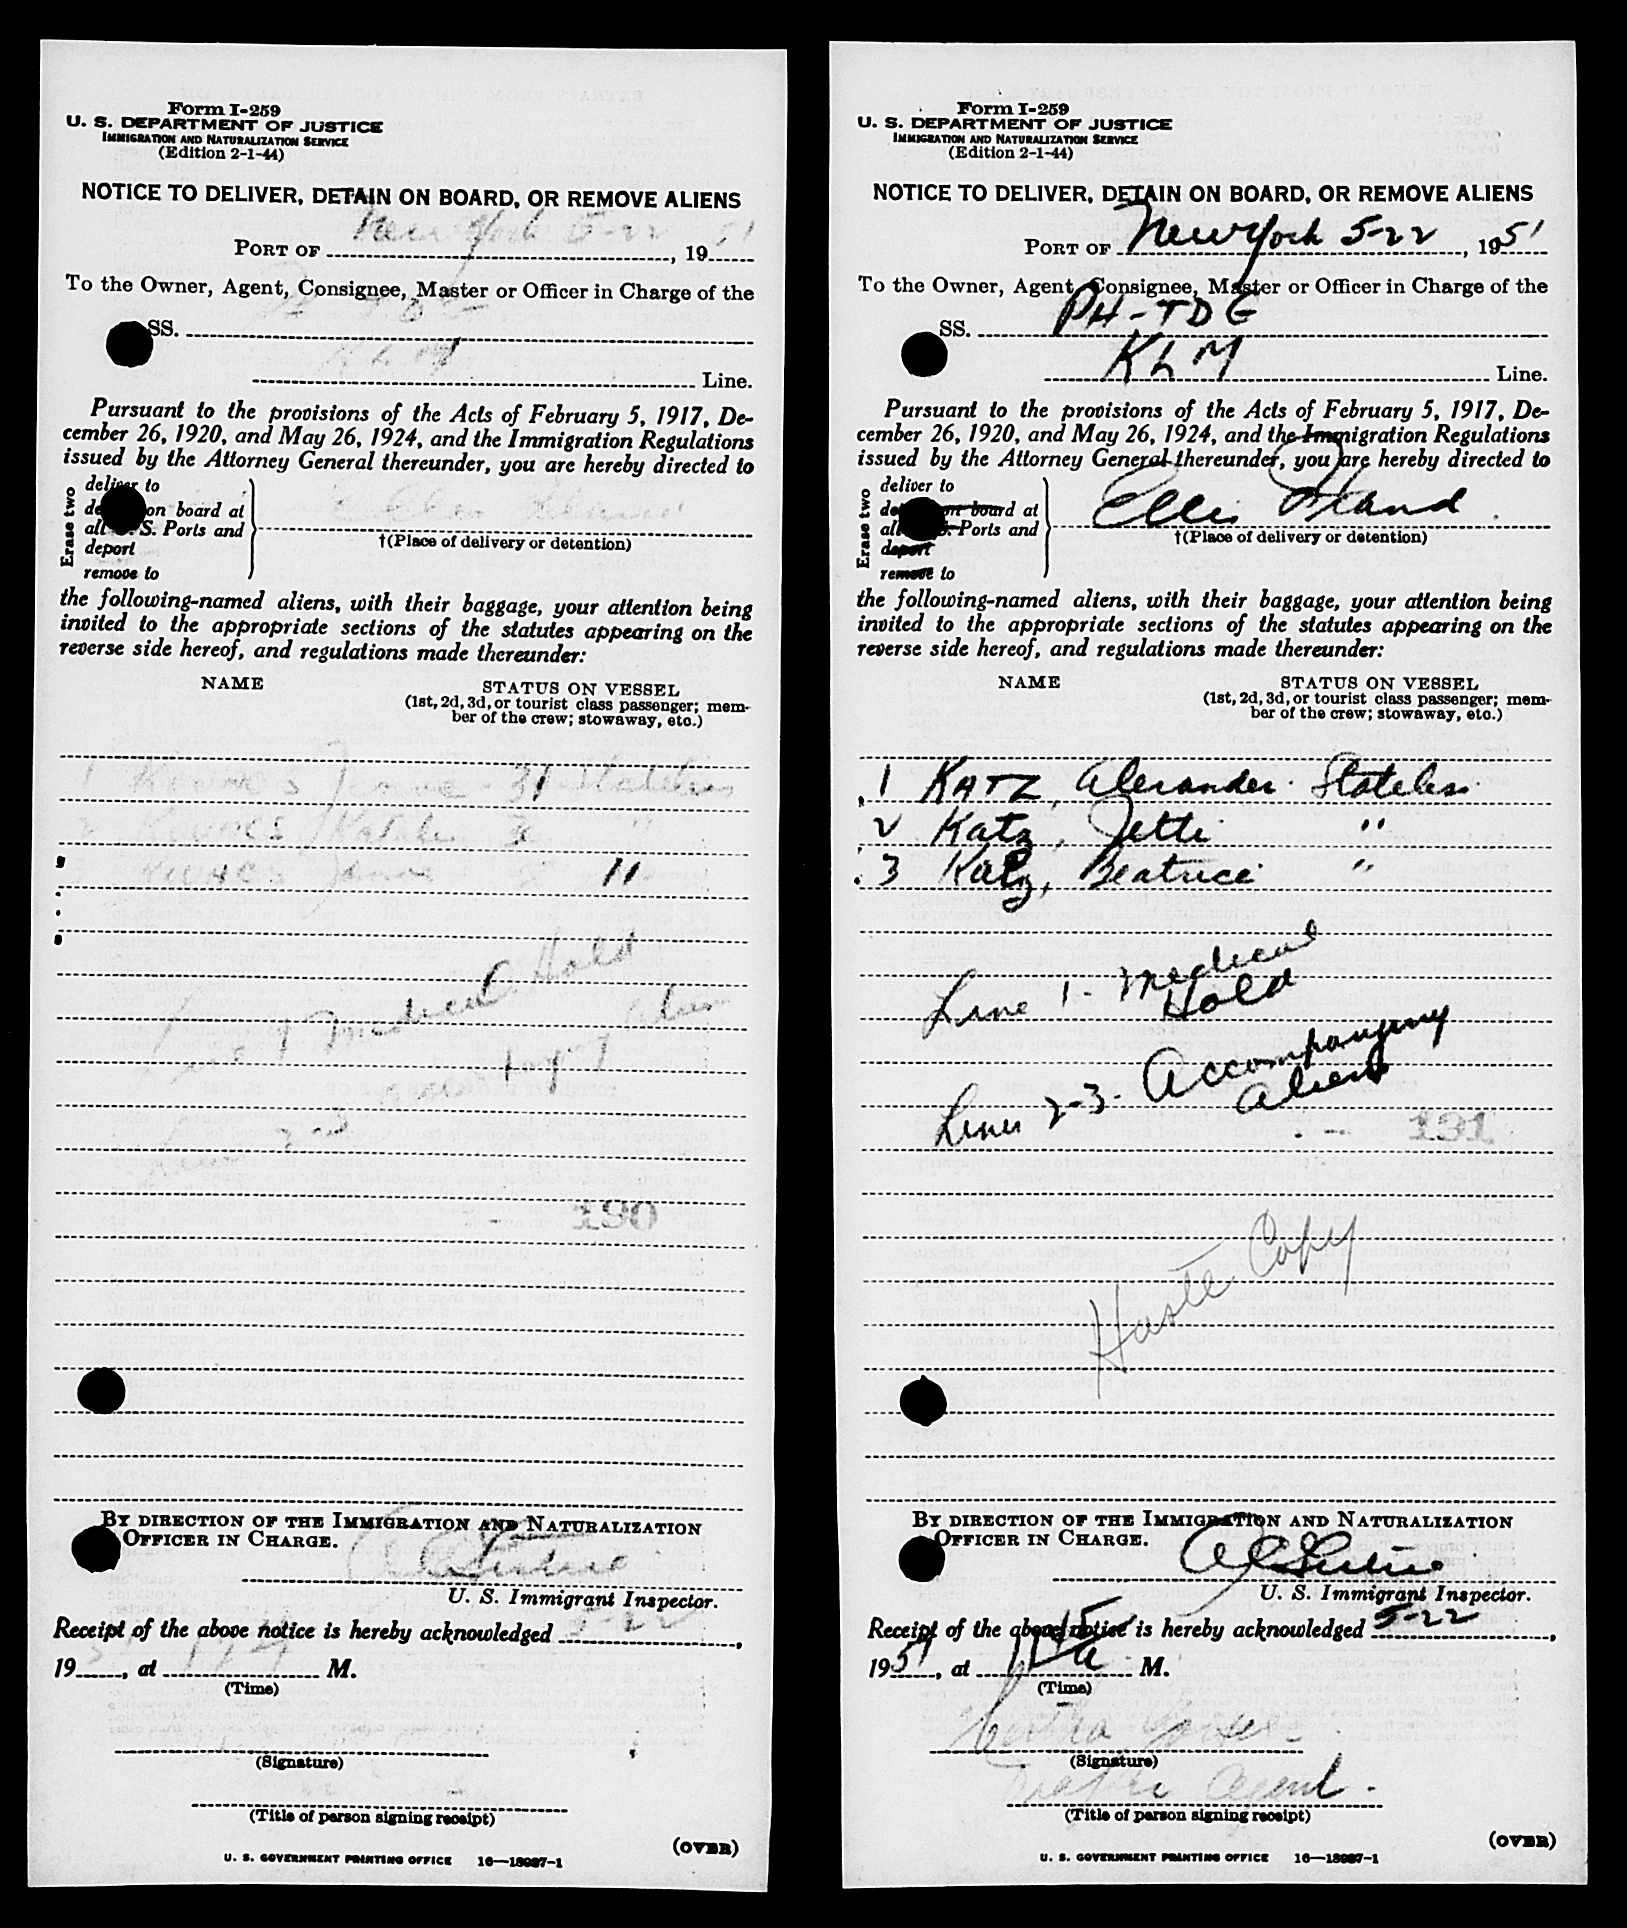 Form I-259
U. S. DEPARTMENT OF JUSTICE
IMMIGRATION AND NATURALIZATION SERVICE
(Edition 2-1-44)
NOTICE TO DELIVER, DETAIN ON BOARD, OR REMOVE ALIENS
PORT OF New York 5-22, 1951
To the Owner, Agent, Consignee, Master or Officer in Charge of the
SS.
KLM Line.
Pursuant to the provisions of the Acts of February 5, 1917, De-
cember 26, 1920, and May 26, 1924, and the Immigration Regulations
issued by the Attorney General thereunder, you are hereby directed to
Erase two
deliver to
on board at
all S. Ports and
deport
remove to
Ellis Island
†(Place of delivery or detention)
the following-named aliens, with their baggage, your attention being
invited to the appropriate sections of the statutes appearing on the
reverse side hereof, and regulations made thereunder:
NAME STATUS ON VESSEL
(1st, 2d, 3d, or tourist class passenger; mem-
ber of the crew; stowaway, etc.)
1 31 Stateless
2 "
"
Medical Hold
190
BY DIRECTION OF THE IMMIGRATION AND NATURALIZATION
OFFICER IN CHARGE.
U. S. Immigrant Inspector.
Receipt of the above notice is hereby acknowledged 5-22,
19, at M.
(Time)
(Signature)
(Title of person signing receipt)
(OVER)
U. S. GOVERNMENT PRINTING OFFICE 16—18087-1
Form I-259
U. S. DEPARTMENT OF JUSTICE
IMMIGRATION AND NATURALIZATION SERVICE
(Edition 2-1-44)
NOTICE TO DELIVER, DETAIN ON BOARD, OR REMOVE ALIENS
PORT OF New York 5-22, 1951
To the Owner, Agent, Consignee, Master or Officer in Charge of the
SS. PH-TDG
KLM Line.
Pursuant to the provisions of the Acts of February 5, 1917, De-
cember 26, 1920, and May 26, 1924, and the Immigration Regulations
issued by the Attorney General thereunder, you are hereby directed to
Erase two
deliver to
on board at
all S. Ports and
deport
remove to
Ellis Island
†(Place of delivery or detention)
the following-named aliens, with their baggage, your attention being
invited to the appropriate sections of the statutes appearing on the
reverse side hereof, and regulations made thereunder:
NAME STATUS ON VESSEL
(1st, 2d, 3d, or tourist class passenger; mem-
ber of the crew; stowaway, etc.)
1 KATZ, Alexander Stateless
2 Katz, Jetti "
3 Katz, Beatrice "
Line 1 - Medical
Hold
Lines 2-3 - Accompanying
Aliens
191
Copy
BY DIRECTION OF THE IMMIGRATION AND NATURALIZATION
OFFICER IN CHARGE.
U. S. Immigrant Inspector.
Receipt of the above notice is hereby acknowledged 5-22,
1951, at 1145 a M.
(Time)
(Signature)
Agent
(Title of person signing receipt)
(OVER)
U. S. GOVERNMENT PRINTING OFFICE 16—18087-1